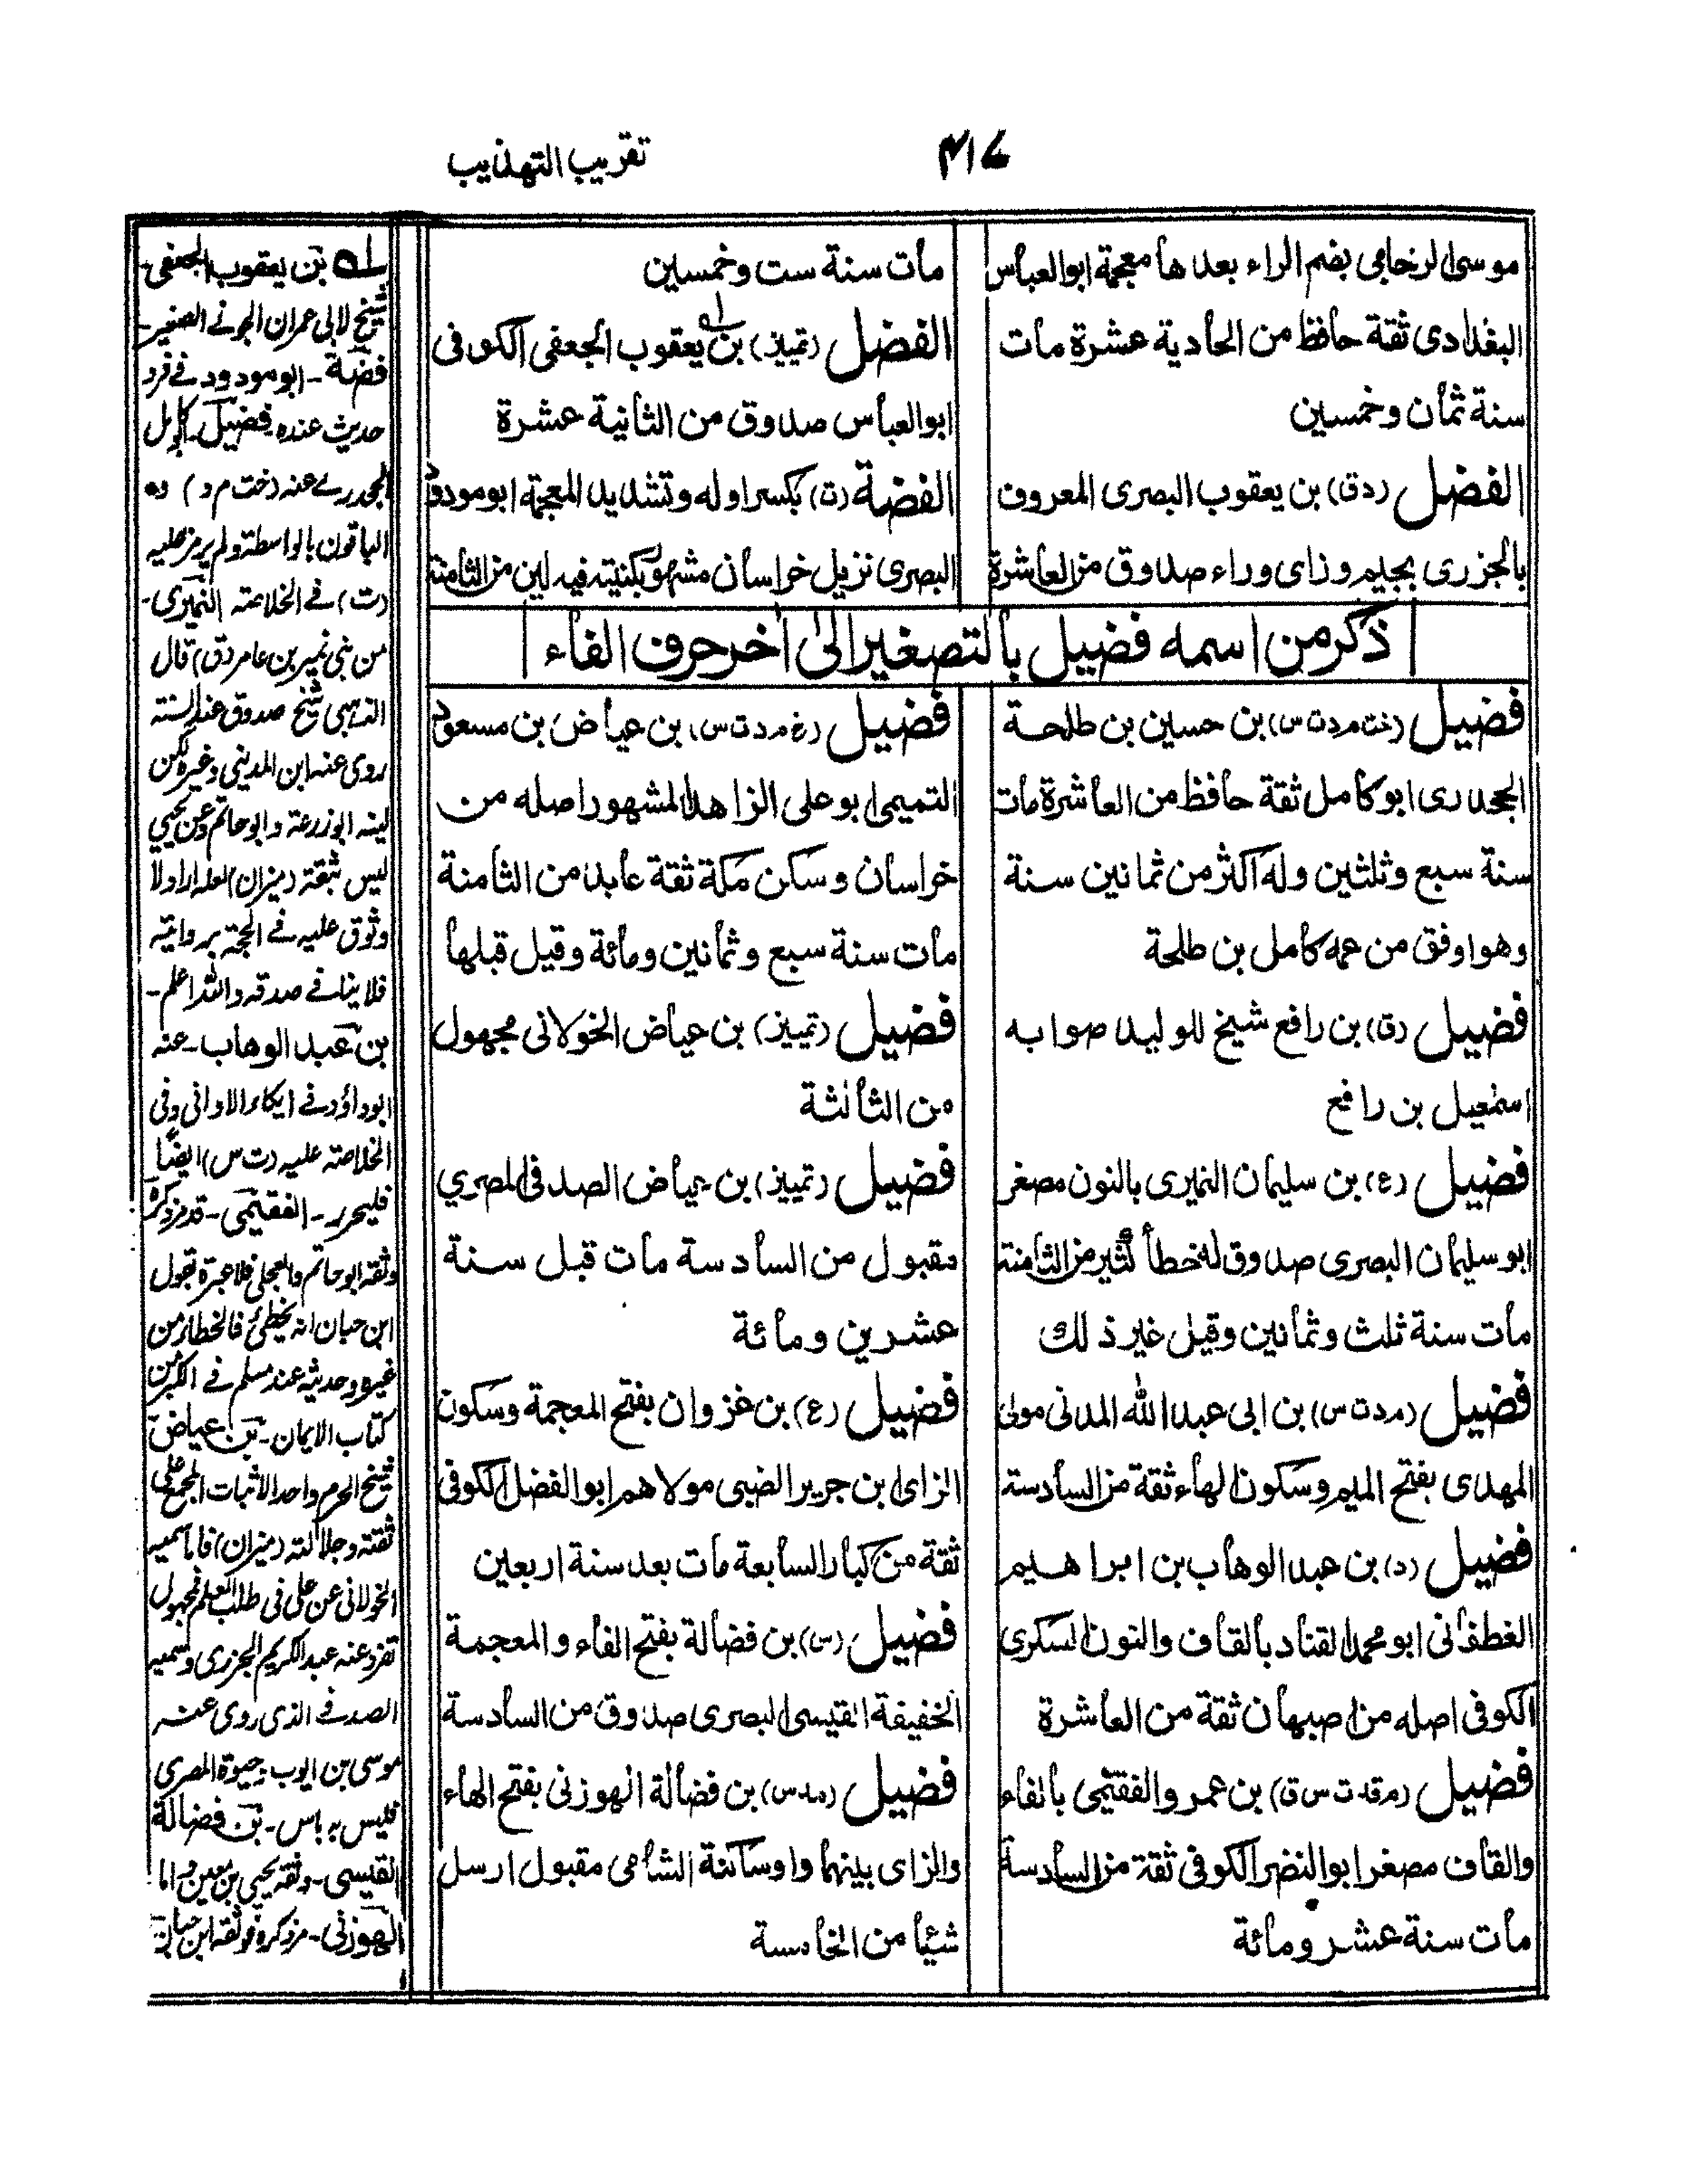 ٤١٧
تقريب التهذيب
موسى الرخامى بضم الراء بعدها معجمة ابوالعباس
البغدادى ثقة حافظ من الحادية عشرة مات
سنة ثمان وخمسين
الفضل (دق) بن يعقوب البصرى المعروف
بالجزرى بجيم وزاى وراء صدوق من العاشرة
مات سنة ست وخمسين
الفضل (تمييز) بن يعقوب الجعفى الكوفى
ابوالعباس صدوق من الثانية عشرة
الفضة (ت) بكسر اوله وتشديد المعجمة ابومودود
البصرى نزيل خراسان مشهور بكنيته فيه لين من الثامنة
ذكر من اسمه فضيل بالتصغير الى اخر حرف الفاء
فضيل (خت م د ت س) بن حسين بن طلحة
الجحدرى ابو كامل ثقة حافظ من العاشرة مات
سنة سبع وثلثين وله اكثر من ثمانين سنة
وهو اوفق من عمه كامل بن طلحة
فضيل (ق) بن رافع شيخ للوليد صوابه
اسمعيل بن رافع
فضيل (ع) بن سليمان النميرى بالنون مصغر
ابو سليمان البصرى صدوق له خطأ كثير من الثامنة
مات سنة ثلث وثمانين وقيل غير ذلك
فضيل (م د ت س) بن ابى عبد الله المدنى مولى
المهدى بفتح الميم وسكون الهاء ثقة من السادسة
فضيل (د) بن عبد الوهاب بن ابراهيم
الغطفانى ابو محمد القناد بالقاف والنون السكرى
الكوفى اصله من اصبهان ثقة من العاشرة
فضيل (م قد ت س ق) بن عمرو الفقيمى بالفاء
والقاف مصغر ابو النضر الكوفى ثقة من السادسة
مات سنة عشر ومائة
فضيل (خ م د ت س) بن عياض بن مسعود
التميمى ابو على الزاهد المشهور اصله من
خراسان وسكن مكة ثقة عابد من الثامنة
مات سنة سبع وثمانين ومائة وقيل قبلها
فضيل (تمييز) بن عياض الخولانى مجهول
من الثالثة
فضيل (تمييز) بن عياض الصدفى المصري
مقبول من السادسة مات قبل سنة
عشرين ومائة
فضيل (ع) بن غزوان بفتح المعجمة وسكون
الزاى بن جرير الضبى مولاهم ابو الفضل الكوفى
ثقة من كبار السابعة مات بعد سنة اربعين
فضيل (س) بن فضالة بفتح الفاء والمعجمة
الخفيفة القيسى البصرى صدوق من السادسة
فضيل (مد س) بن فضالة الهوزنى بفتح الهاء
والزاى بينهما واو ساكنة الشامى مقبول ارسل
شيئا من الخامسة
لـه بن يعقوب الجعفى-
شيخ لابى عمران الجونے الصغير-
فضة- ابو مودود فے فرد
حديث عنده- فضيل- كامل
الجحدرے عنه (خت م د) و
الباقون بالواسطة ولم يرمز عليه
(ت) فے الخلاصة النميرى-
من بنى نمير بن عامر (ق) قال
الذهبى شيخ صدوق عند الستة
روى عنه ابن المدينى وغيره لكن
لينه ابوزرعة وابوحاتم وعن يحيي
ليس بثقة (ميزان) لعله اراد لا
وثوق عليه فے الحجة بروايته
فلا ينافے صدقه والله اعلم-
بن عبد الوهاب- عنه
ابوداؤد فے ايكاء الاوانى وفى
الخلاصة عليه (ت س) ايضًا
فليحرر- الفقيمى- قد مر ذكره
وثقه ابوحاتم والعجلى فلا عبرة بقول
ابن حبان انه يخطئ فالخطاء من
غيره وحديثه عند مسلم فے الكبر من
كتاب الايمان- بن عياض
شيخ الحرم واحد الاثبات المجمع على
ثقته وجلالته (ميزان) فاما سميه
الخولانى عن على فى طلب العلم فمجهول
تفرد عنه عبد الكريم الجزرى وسميه
الصدفے الذى روى عنه
موسى بن ايوب وحيوة المصرى
فليس به باس- بن فضالة
القيسى- وثقه يحيي بن معين واما
الهوزنى- مر ذكره فوثقه ابن حبان